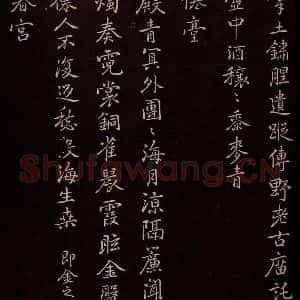 土鏽腥遺蹤傳野老古廟託
中酒穰〻黍麥青
臺
殿青冥外團〻海月涼隔簾聞
燭奏霓裳銅雀晨霞眩金盤
人不復迴愁災海生桑 即金之
春宮
Shufawang.CN